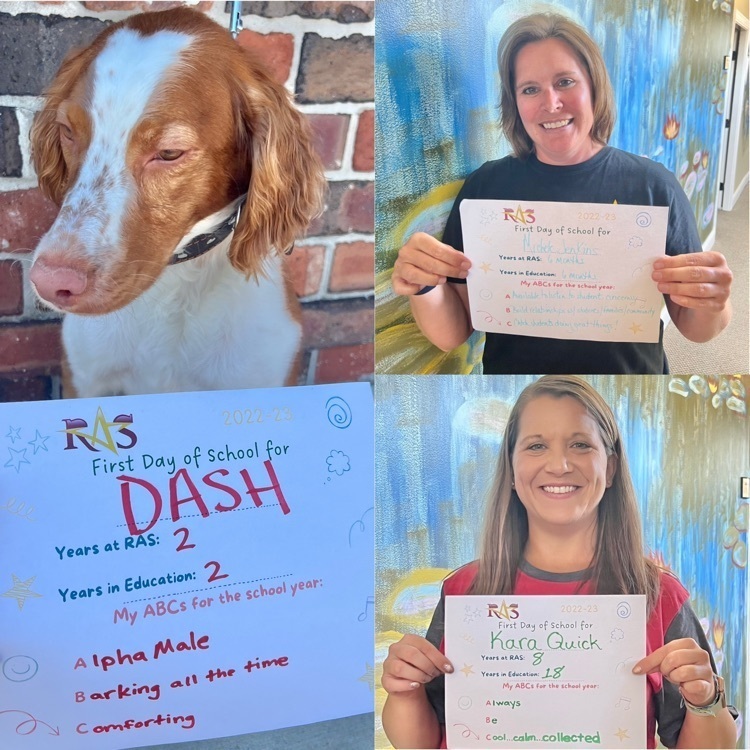 RAS
2022-23
First Day of School for
DASH
Years at RAS: 2
Years in Education: 2
My ABCs for the school year:
Alpha Male
Barking all the time
Comforting
RAS 2022-23
First Day of School for
Nicole Jenkins
Years at RAS: 6 months
Years in Education: 6 months
My ABCs for the school year:
A
B
C
RAS 2022-23
First Day of School for
Kara Quick
Years at RAS: 8
Years in Education: 18
My ABCs for the school year:
Always
Be
Cool...calm...collected